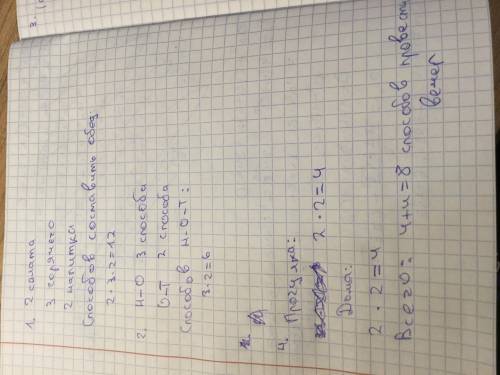 3. 10
1. 2 салата
3 горячего
2 напитка
Способов составить обед
2·3·2=12
2. Н-О 3 способа
О-Т 2 способа
Способов Н-О-Т:
3·2=6
4. Прогулка:
2·2=4
Дома:
2·2=4
Всего: 4+4=8 способов провести
вечер